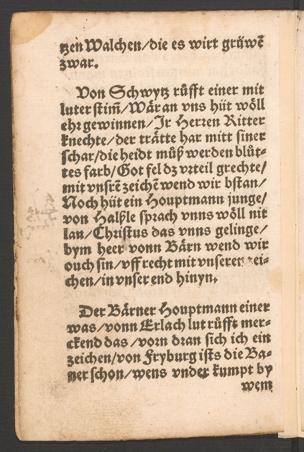 tzen Walchen/die es wirt grüwē
zwar.
Von Schwytz rüfft einer mit
luter stim̄/Wär an vns hüt wöll
ehr gewinnen/Jr Herren Ritter
knechte/der trätte har mitt siner
schar/die heidt müß werden blůt-
tes farb/Got fel dz vrteil grechte/
mit vnsrē zeichē wend wir bstan/
Noch hüt ein Houptmann junge/
von Halßle sprach vnns wöll nit
lan/Christus das vnns gelinge/
bym heer vonn Bärn wend wir
ouch sin/vff recht mit vnseren zei-
chen/in vnser end hinyn.
Der Bärner Houptmann einer
was/vonn Erlach lut rüfft mer-
ckend das/vorn dran sich ich ein
zeichen/von Fryburg ists die Ba-
ner schon/wens vnder kumpt by
wem